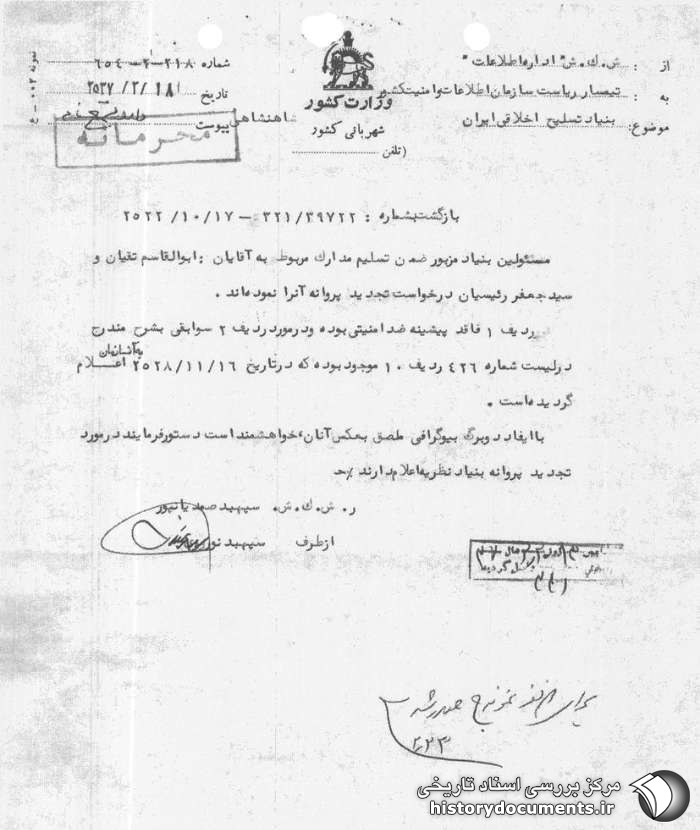 از : ش . ك . ش " اداره اطلاعات "
به : تیمسار ریاست سازمان اطلاعات و امنیت کشور
موضوع : بنیاد تسلیح اخلاقی ایران
وزارت کشور
شهربانی کشور شاهنشاهی
( تلفن
شماره ۲۱۸-۲-۶۵۴
تاریخ ۲۵۳۷/۲/۱۸
پیوست
محرمانه
بازگشت بشماره : ۳۲۱/۳۹۷۲۲ - ۲۵۲۲/۱۰/۱۷
مسئولین بنیاد مزبور ضمن تسلیم مدارك مربوط به آقایان : ابوالقاسم تقیان و
سید جعفر رئیسیان درخواست تجدید پروانه آنرا نموده‌اند .
ردیف ۱ فاقد پیشینه ضد امنیتی بوده و در مورد ردیف ۲ سوابقی بشرح مندرج
در لیست شماره ۴۲۶ ردیف ۱۰ موجود بوده که در تاریخ ۲۵۲۸/۱۱/۱۶ به آنسازمان اعـلام
گردیده است .
با ایفاد دو برگ بیوگرافی ملصق بعکس آنان ، خواهشمند است دستور فرمایند در مورد
تجدید پروانه بنیاد نظریه اعلام دارند %ح
ر . ش . ك . ش . سپهبد صمدیانپور
از طرف سپهبد
۲/۲۳
مرکز بررسی اسناد تاریخی
historydocuments.ir